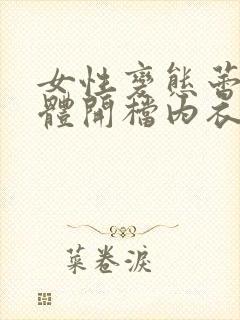 女性變態蕾
體開檔内衣
菜卷淚